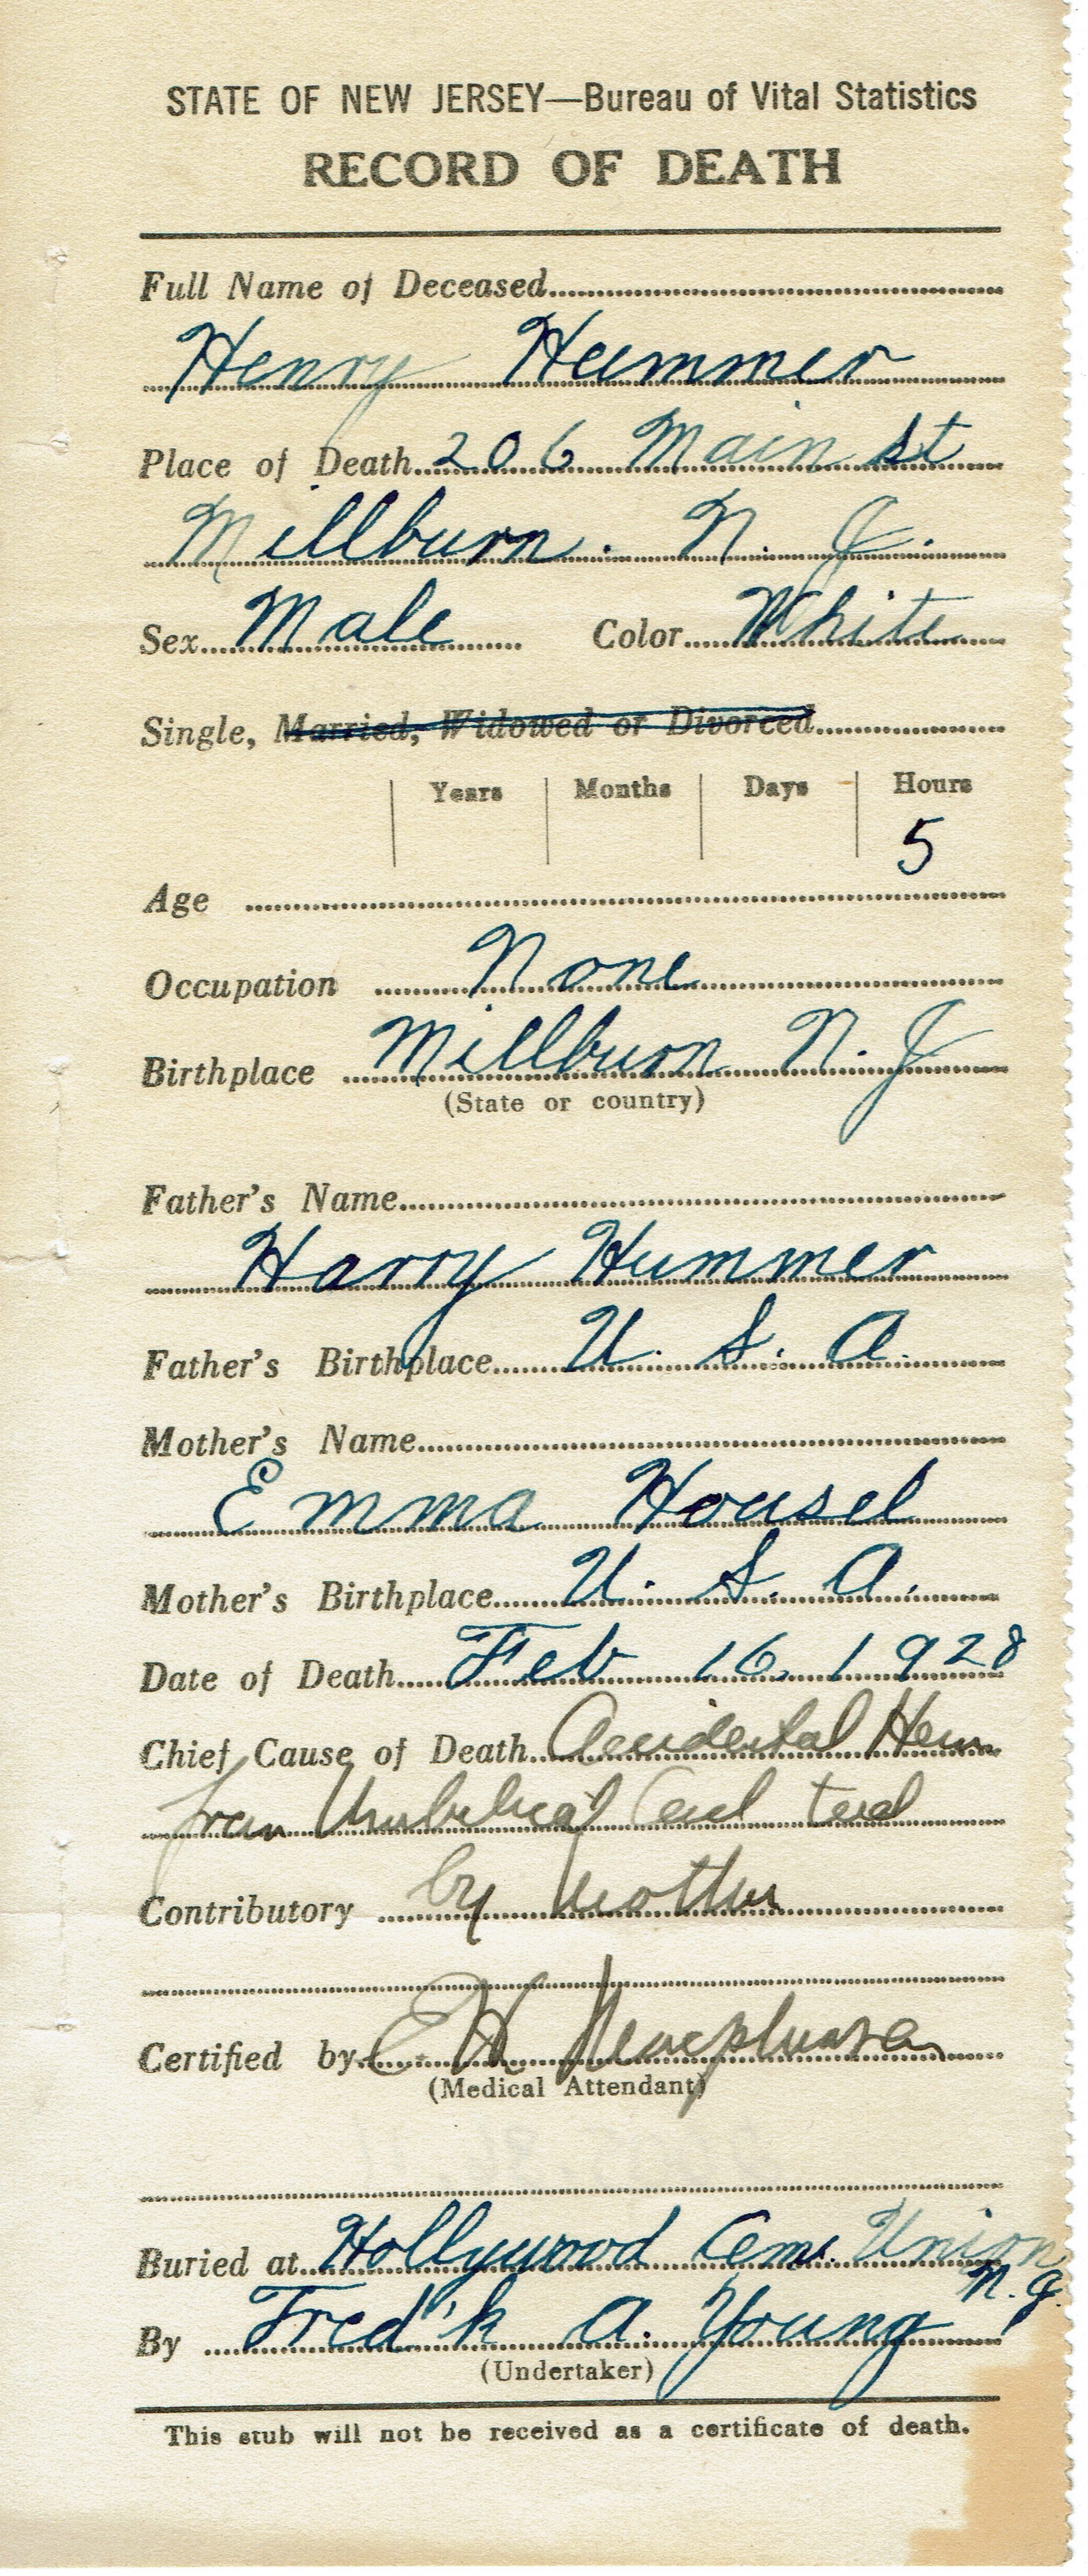 STATE OF NEW JERSEY—Bureau of Vital Statistics
RECORD OF DEATH
Full Name of Deceased
Henry Hummer
Place of Death 206 Main St
Millburn. N. J.
Sex Male Color White
Single, Married, Widowed or Divorced
Years Months Days Hours
5
Age
Occupation None
Birthplace Millburn N. J
(State or country)
Father's Name
Harry Hummer
Father's Birthplace U. S. A.
Mother's Name
Emma Housel
Mother's Birthplace U. S. A.
Date of Death Feb 16, 1928
Chief Cause of Death Accidental Hem
from Umbilical Cord tied
Contributory by Mother
Certified by E H
(Medical Attendant)
Buried at Hollywood Cem. Union
N. J.
By Fred'k A. Young
(Undertaker)
This stub will not be received as a certificate of death.